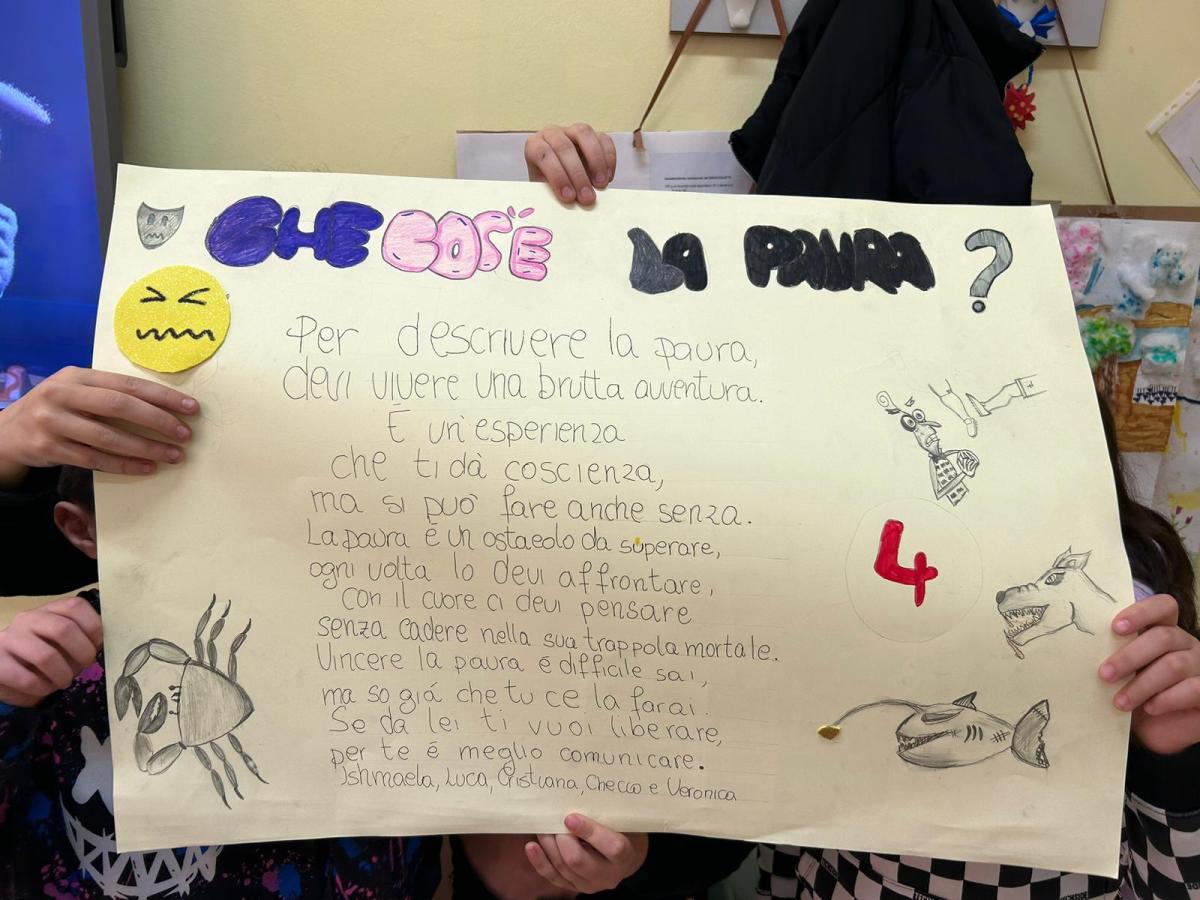 CHE COS'È LA PAURA ?
Per descrivere la paura,
devi vivere una brutta avventura.
È un'esperienza
che ti dà coscienza,
ma si può fare anche senza.
La paura è un ostaeolo da superare,
ogni volta lo devi affrontare,
con il cuore ci devi pensare
senza cadere nella sua trappola mortale.
Vincere la paura é difficile sai,
ma so giá che tu ce la farai.
Se da lei ti vuoi liberare,
per te é meglio comunicare.
Ishmaela, Luca, Cristiana, Checco e Veronica
4